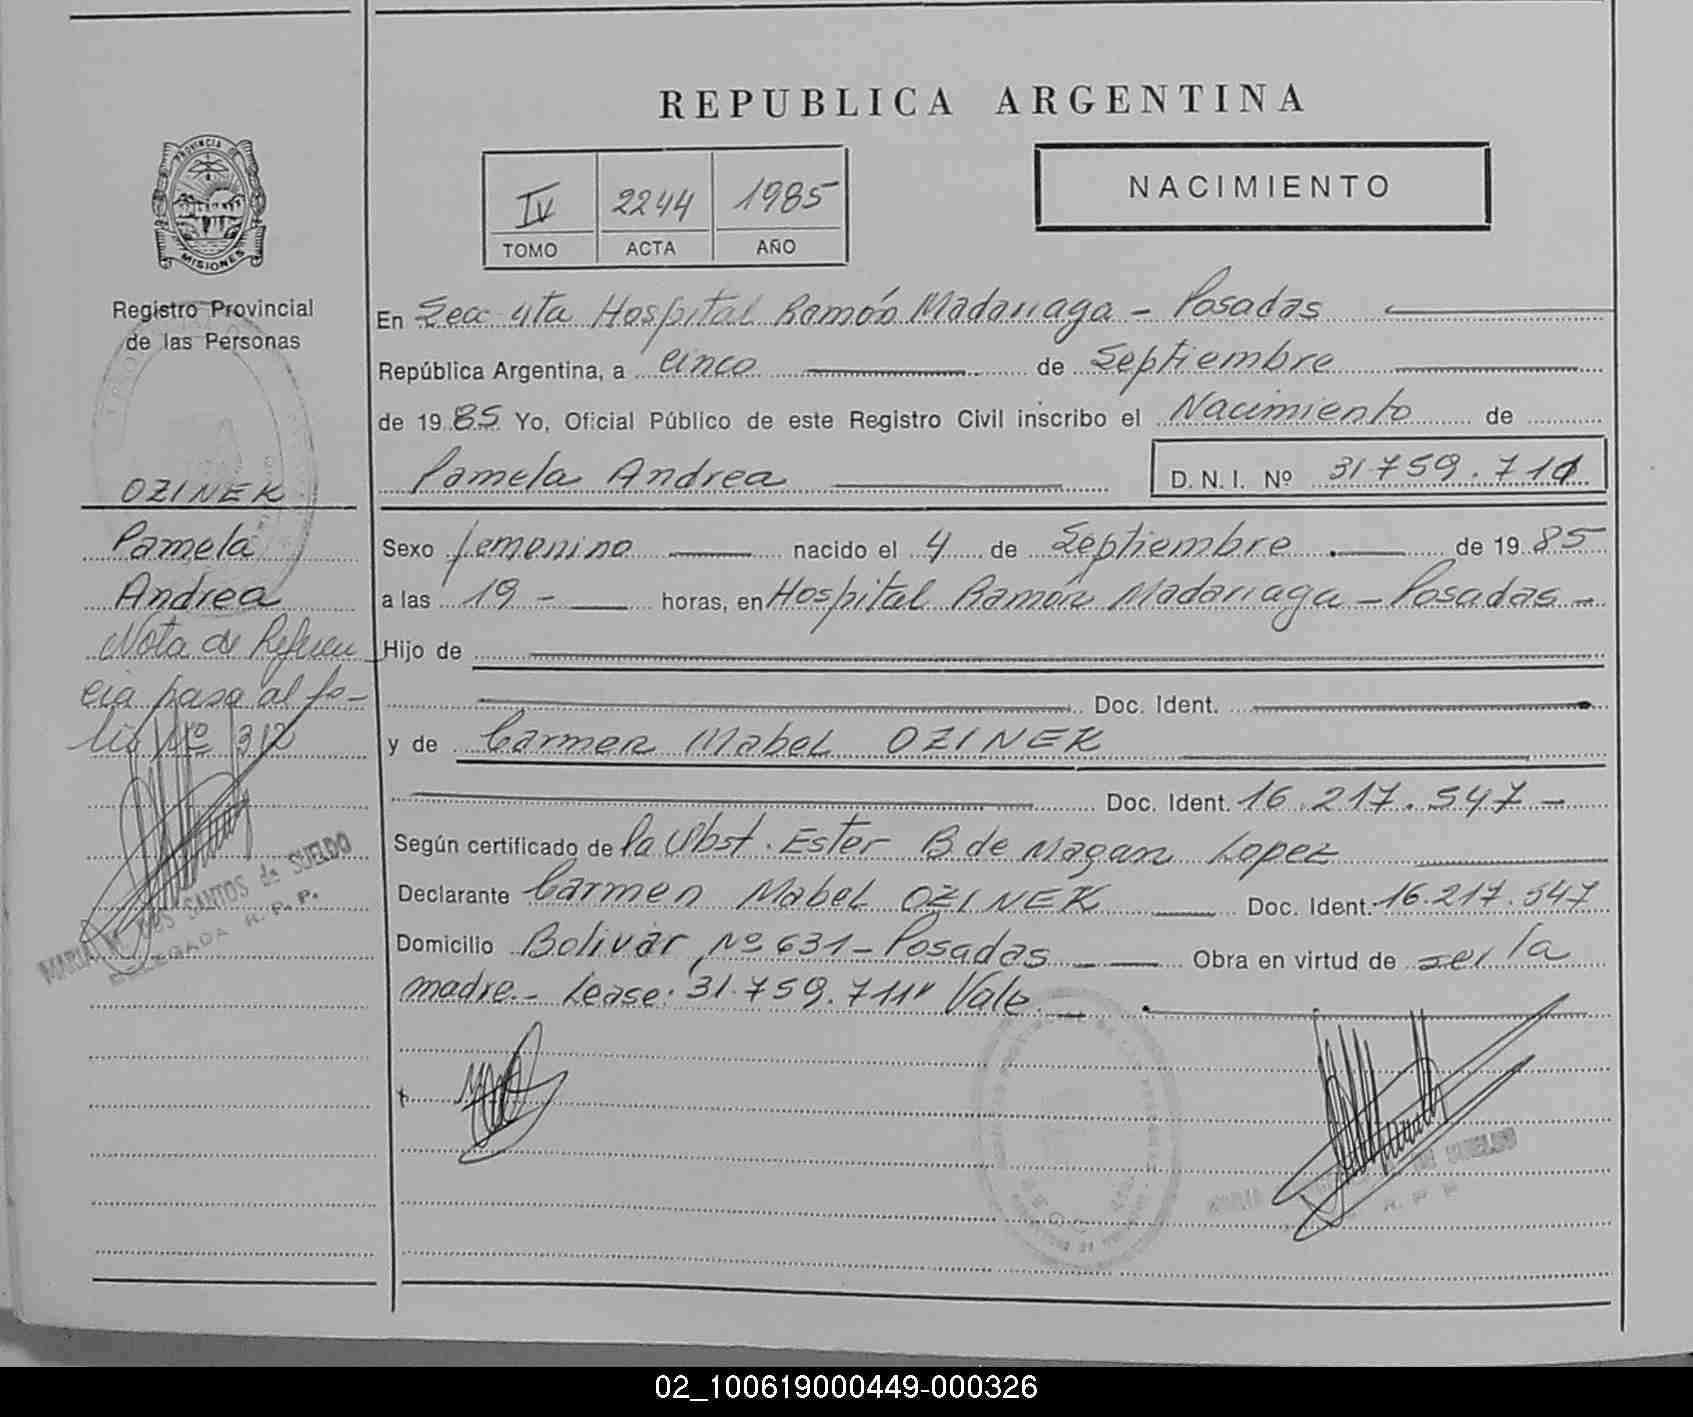 REPUBLICA ARGENTINA
PROVINCIA DE
MISIONES
IV 2244 1985
TOMO ACTA AÑO
NACIMIENTO
Registro Provincial
de las Personas
OZINEK
Pamela
Andrea
Nota de Referen
cia pasa al fo-
lio Nº 312
MARIA M. DOS SANTOS de SUELDO
DELEGADA R. P. P.
En Sec 4ta Hospital Ramón Madariaga - Posadas
República Argentina, a cinco de Septiembre
de 1985 Yo, Oficial Público de este Registro Civil inscribo el Nacimiento de
Pamela Andrea D. N. I. Nº 31759.711
Sexo femenino nacido el 4 de Septiembre de 1985
a las 19 - horas, en Hospital Ramón Madariaga - Posadas -
Hijo de
Doc. Ident.
y de Carmen Mabel OZINEK
Doc. Ident. 16.217.547 -
Según certificado de la Obst. Ester B de Magan Lopez
Declarante Carmen Mabel OZINEK Doc. Ident. 16.217.547
Domicilio Bolivar Nº 631 - Posadas Obra en virtud de ser la
madre.- Lease: 31.759.711" Vale.
02_100619000449-000326